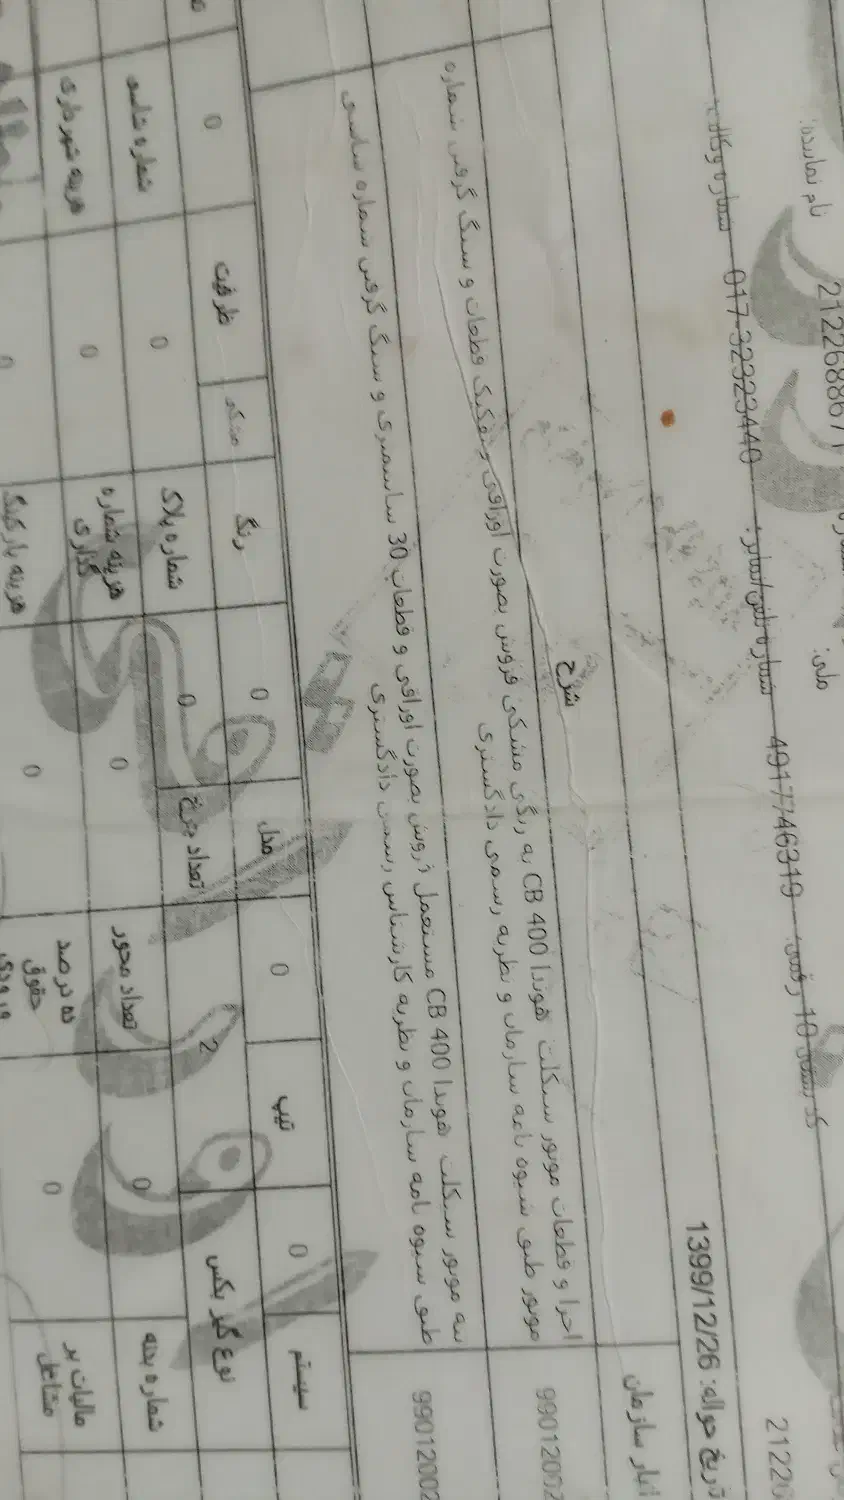 نام نماینده: 2122688671
ملی:
شماره وکالت: 017-32323440 شماره تلفن/نمابر: 4917746319 رقمی: 10 کد پستی
تاریخ حواله: 1399/12/26
2122
انبار سازمان
شرح
99012002
اجزا و قطعات موتور سیکلت هوندا CB 400 به رنگ مشکی فروش بصورت اوراقی و تفکیک قطعات و سنگ گرفتن شماره
موتور طبق شیوه نامه سازمان و نظریه رسمی دادگستری
99012002
تنه موتور سیکلت هوندا CB 400 مستعمل فروش بصورت اوراقی و قطعات 30 سانتیمتری و سنگ گرفتن شماره شاسی
طبق شیوه نامه سازمان و نظریه کارشناس رسمی دادگستری
سیستم 0 تیپ 0 مدل 0 رنگ مشکی ظرفیت 0
نوع گیر بکس 2 تعداد چرخ 0 شماره پلاک 0 شماره شاسی
شماره بدنه 0 تعداد محور 0 هزینه شماره گذاری 0 هزینه شهرداری
مالیات بر مشاغل 0 ده درصد حقوق ورودی 0 هزینه پارکینگ 0